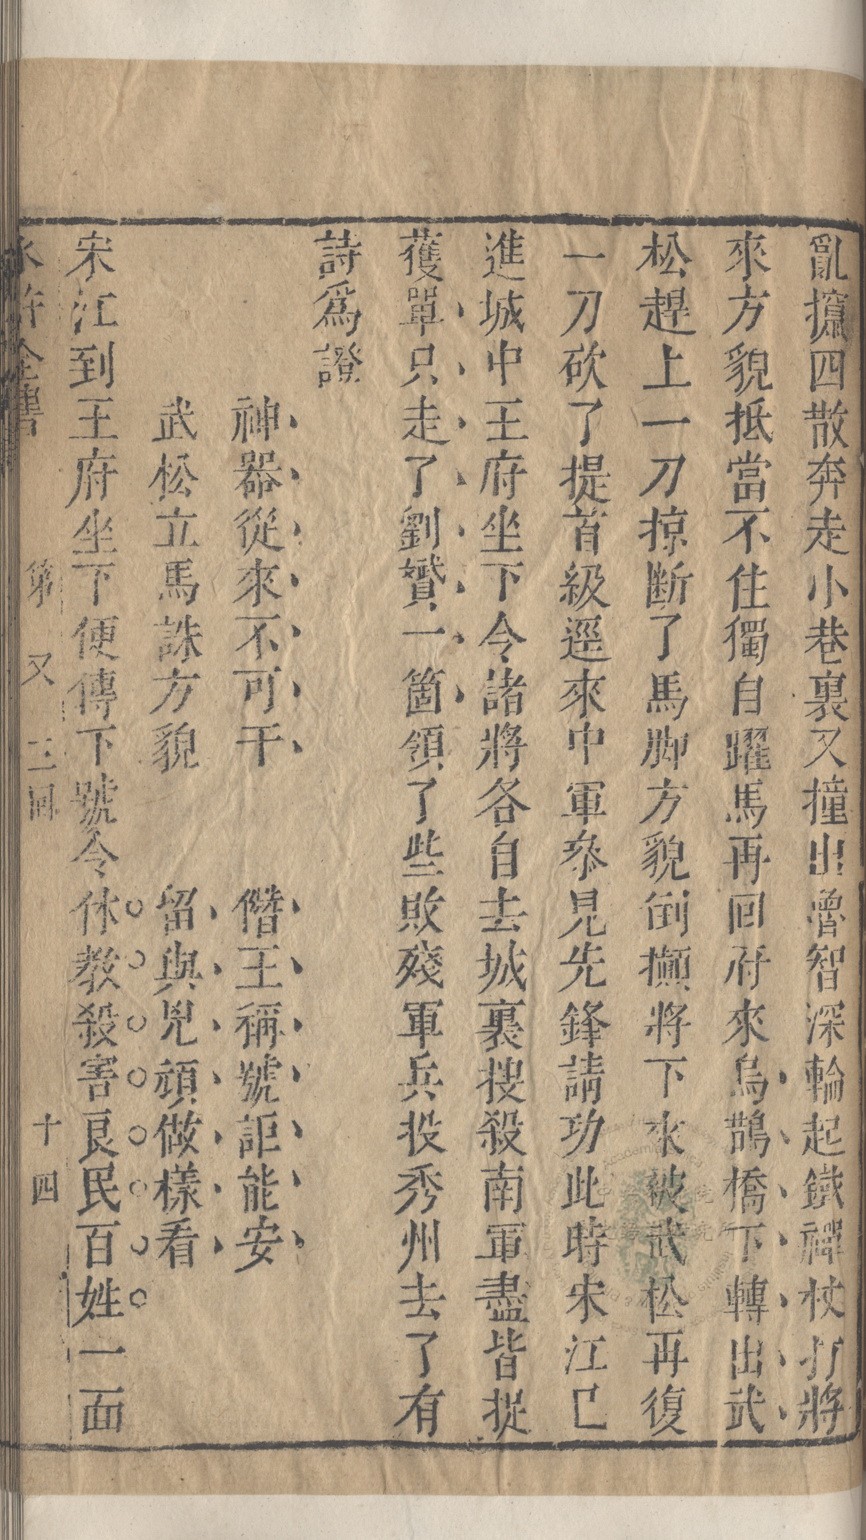 亂攛四散奔走小巷裏又撞出魯智深輪起鐵禪杖打將
來方貌抵當不住獨自躍馬再回府來烏鵲橋下轉出武
松趕上一刀掠斷了馬脚方貌倒攧將下來被武松再復
一刀砍了提首級逕來中軍叅見先鋒請功此時宋江已
進城中王府坐下令諸將各自去城裏搜殺南軍盡皆捉
獲單只走了劉贇一箇領了些敗殘軍兵投秀州去了有
詩爲證
神器從來不可干 僭王稱號詎能安
武松立馬誅方貌 留與兇頑做樣看
宋江到王府坐下便傳下號令休教殺害良民百姓一面
水滸全書 第 又 三回 十四